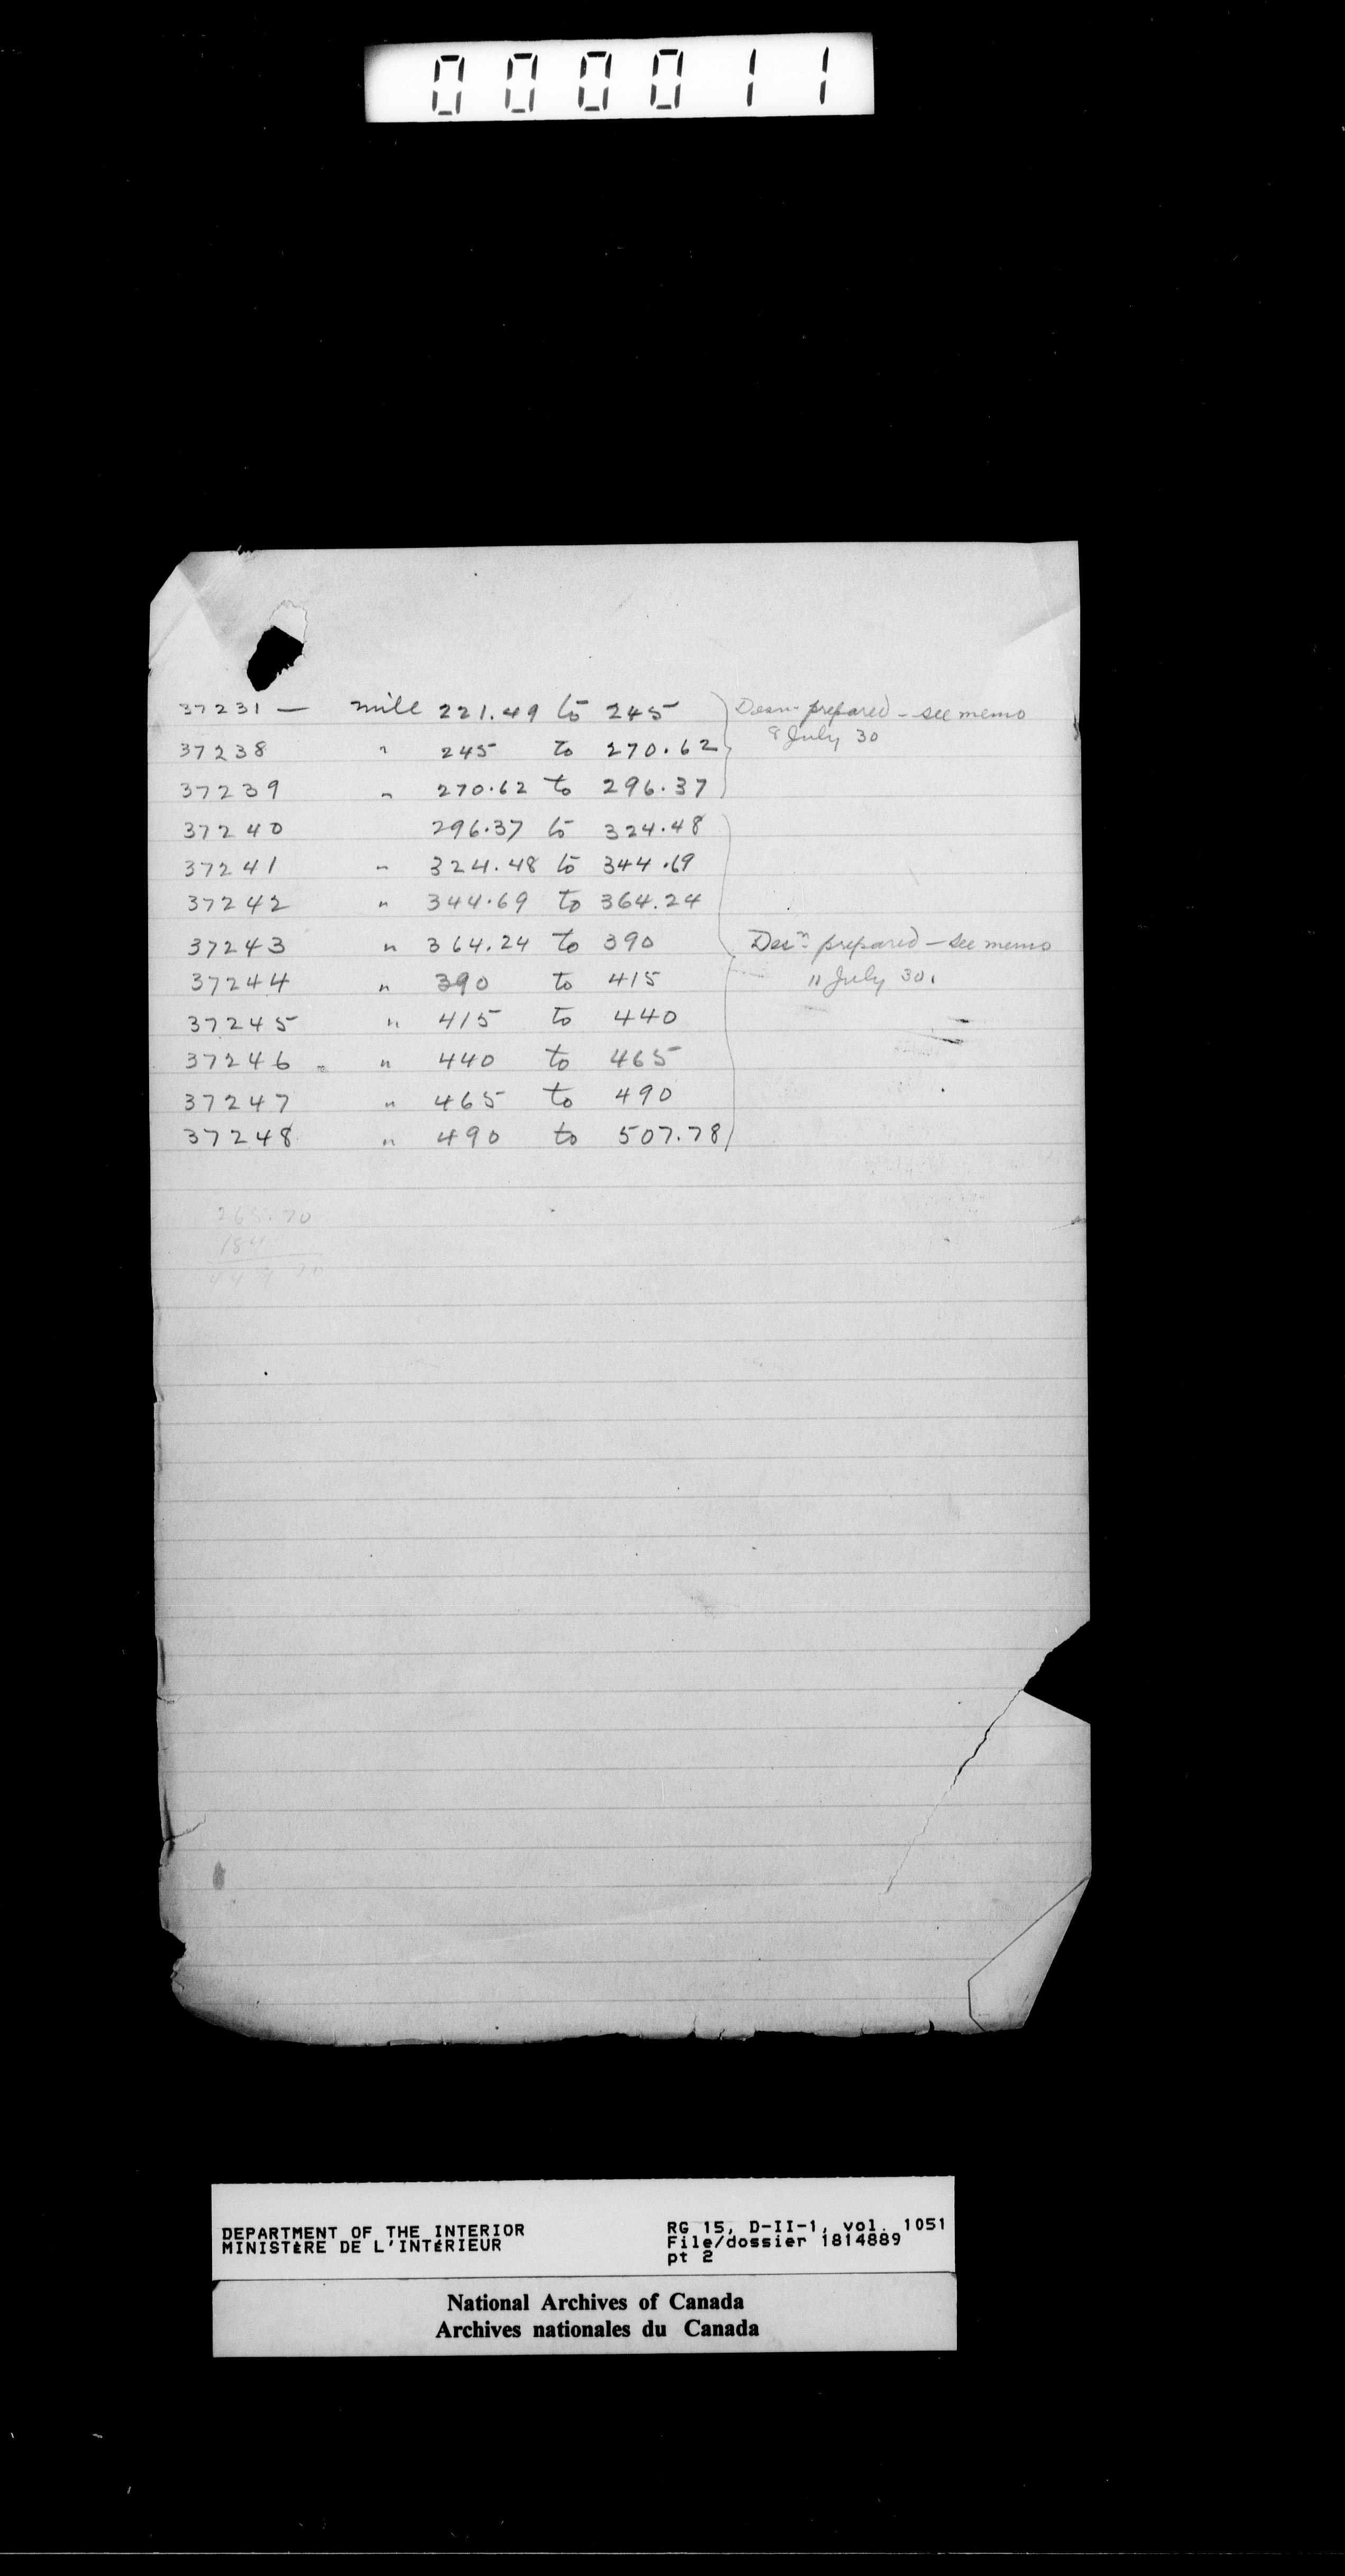 000011
37231 — mile 221.49 to 245 Desn prepared - see memo
8 July 30
37238 " 245 to 270.62
37239 " 270.62 to 296.37
37240 296.37 to 324.48
37241 " 324.48 to 344.69
37242 " 344.69 to 364.24
37243 " 364.24 to 390 Desn prepared - see memo
37244 " 390 to 415 11 July 30.
37245 " 415 to 440
37246 " 440 to 465
37247 " 465 to 490
37248 " 490 to 507.78
265.70
184
DEPARTMENT OF THE INTERIOR
MINISTÈRE DE L'INTÉRIEUR
RG 15, D-II-1, vol. 1051
File/dossier 1814889
pt 2
National Archives of Canada
Archives nationales du Canada